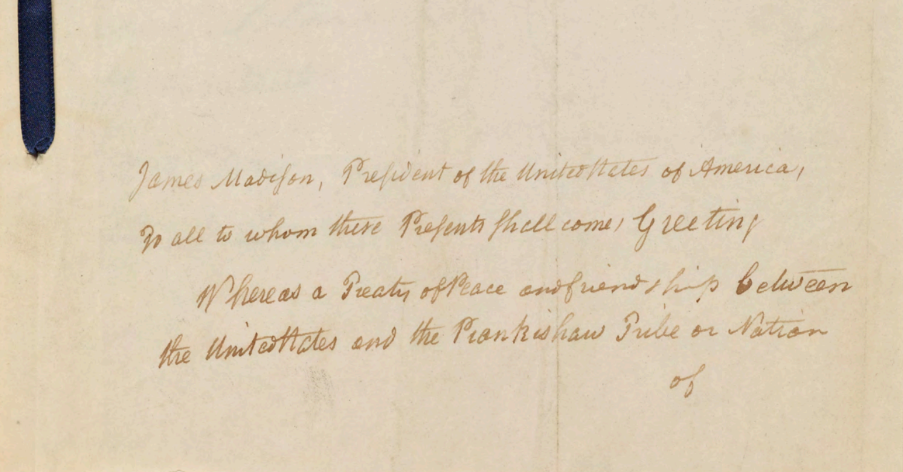 James Madison, President of the United States of America,
To all to whom these Presents shall come, Greeting
Whereas a Treaty of Peace and friendship between
the United States and the Piankishaw Tribe or Nation
of